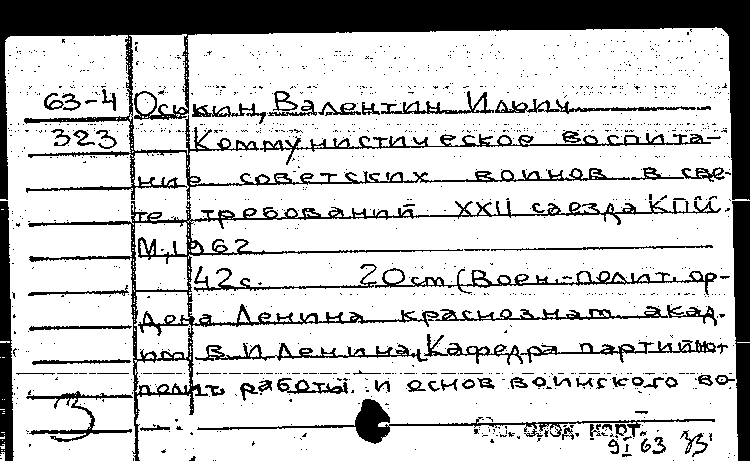 63-4 Оськин, Валентин Ильич
323 Коммунистическое воспита-
ние советских воинов в све-
те требований XXII съезда КПСС.
М., 1962.
42с. 20см (Воен.-полит. ор-
дена Ленина краснознам акад.
им В.И Ленина, Кафедра партийно-
полит. работы и основ воинского во-
3
карт.
9 I 63